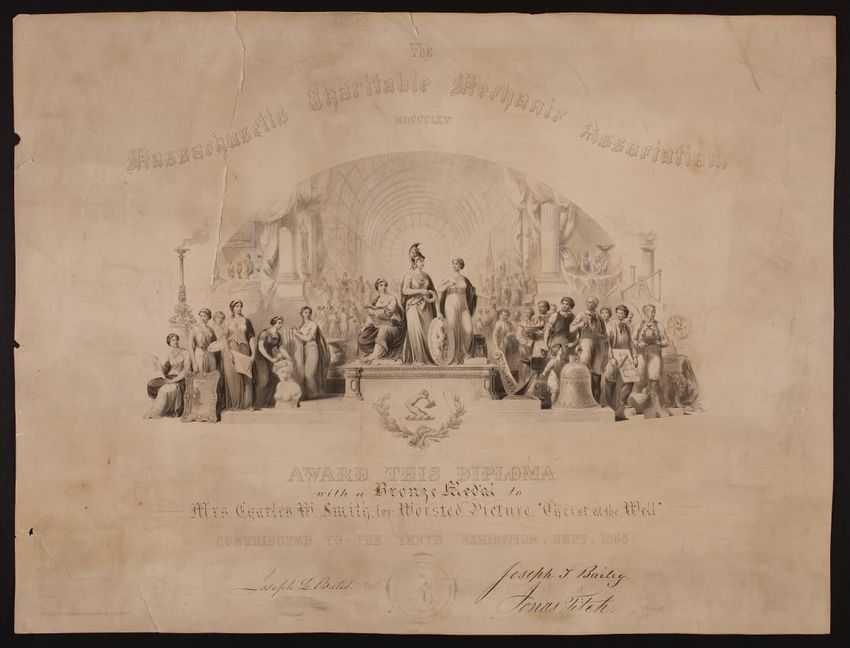 The
Massachusetts Charitable Mechanic Association.
MDCCCLXV
AWARD THIS DIPLOMA
with a Bronze Medal to
Mrs Charles W. Smith, for Worsted Picture, "Christ at the Well"
CONTRIBUTED TO THE TENTH EXHIBITION, SEPT. 1865
Joseph L. Bates. Sec.
Joseph T. Bailey.
Jonas Fitch.